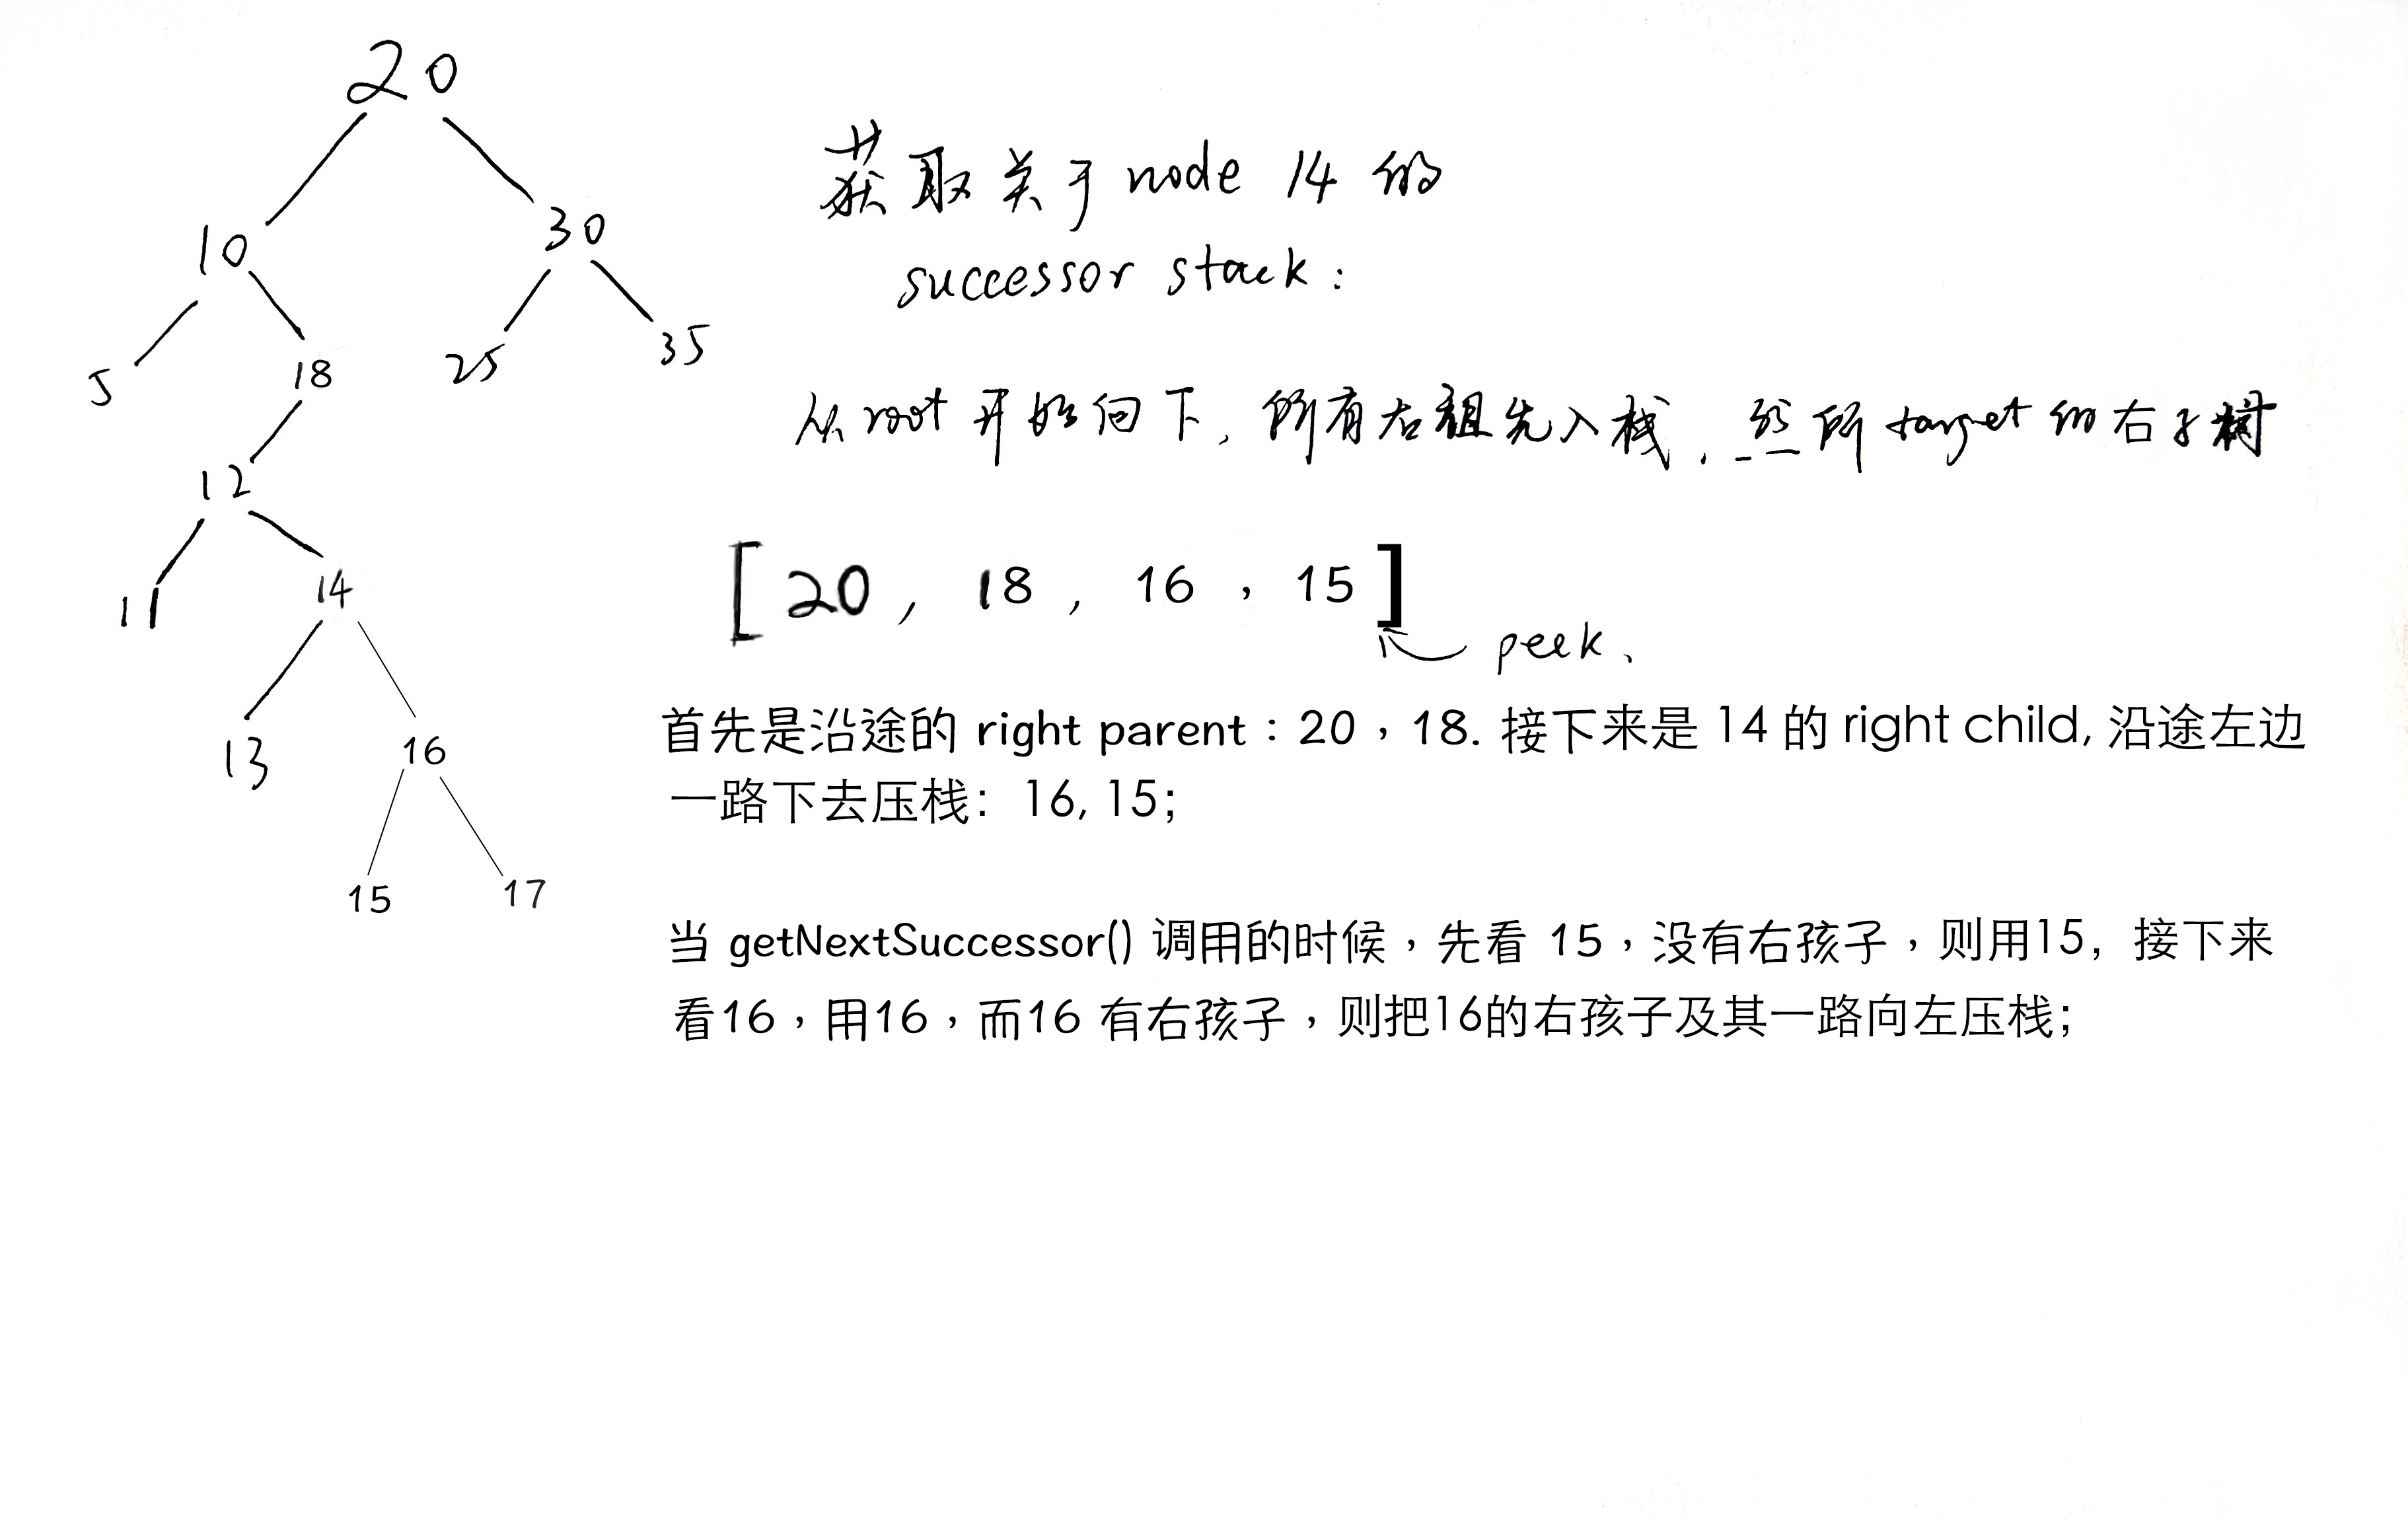 20
10 30
5 18 25 35
12
11 14
13 16
15 17
获取关于 node 14 的
successor stack:
从 root 开始向下, 所有右祖先入栈. target 的右子树
[20, 18, 16, 15]
peek.
首先是沿途的 right parent:20,18. 接下来是 14 的 right child, 沿途左边
一路下去压栈: 16, 15;
当 getNextSuccessor() 调用的时候,先看 15,没有右孩子,则用15, 接下来
看16,用16,而16 有右孩子,则把16的右孩子及其一路向左压栈;